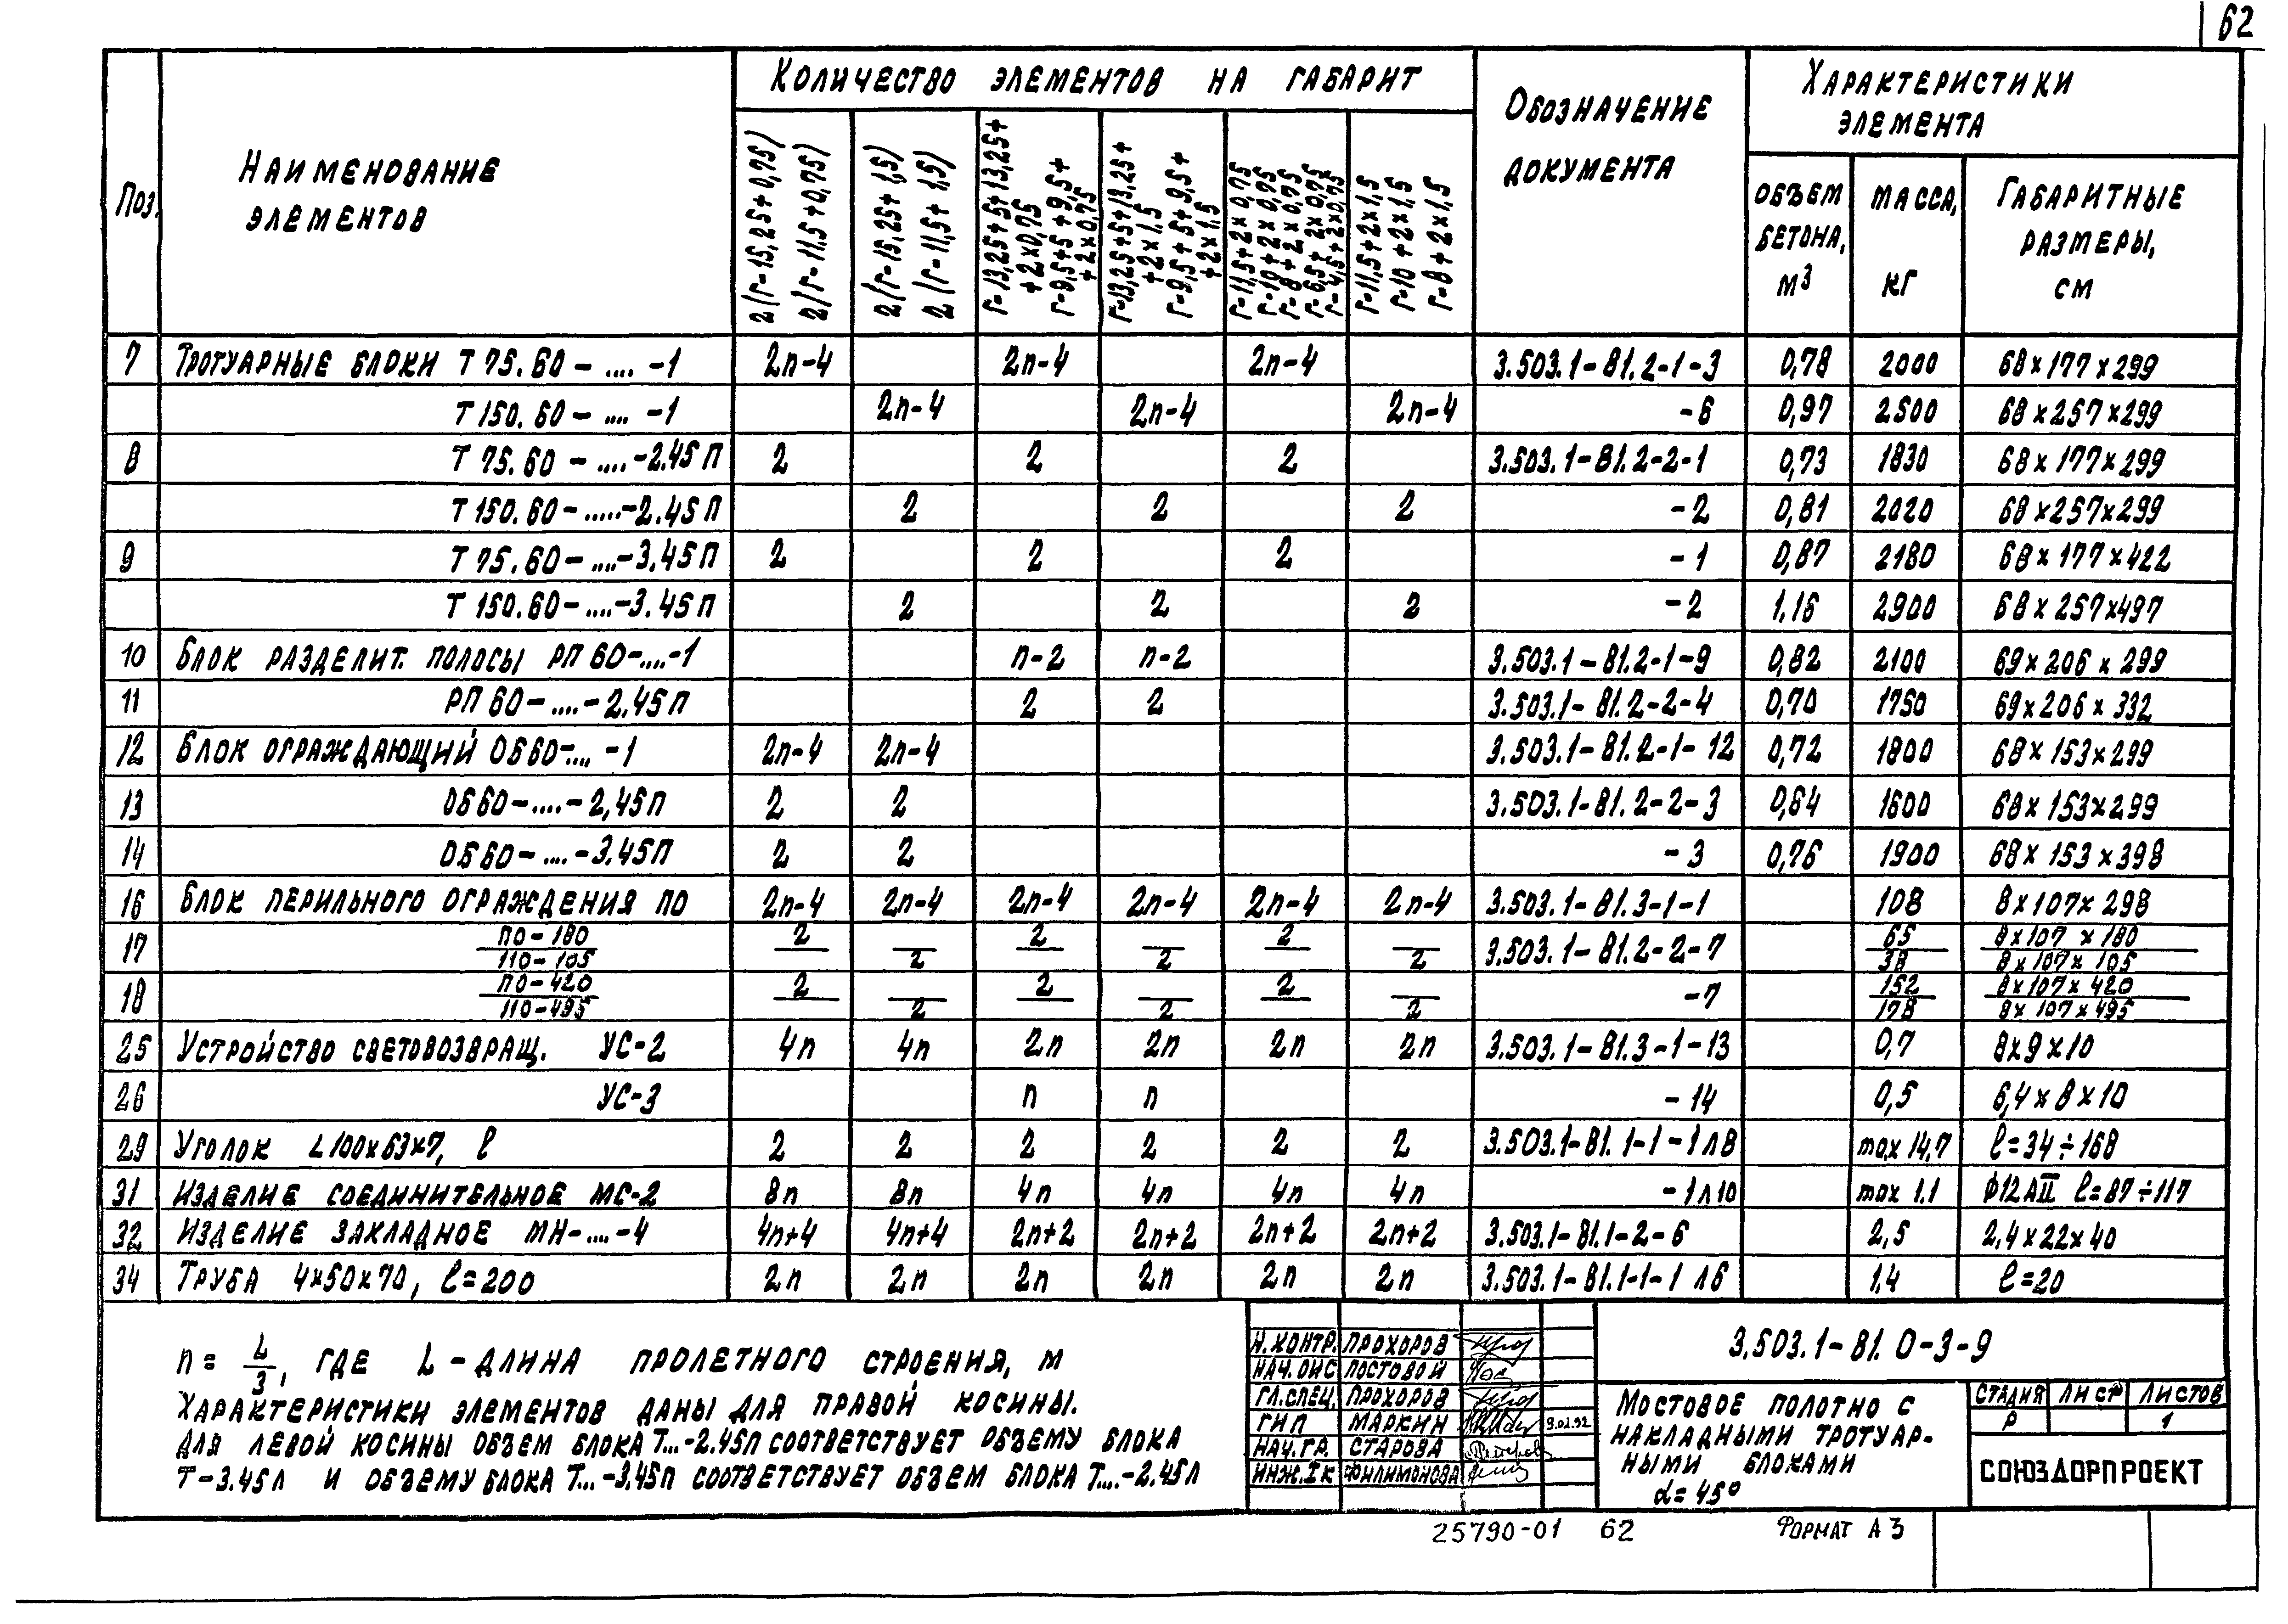 62
Поз.
Наименование
элементов
Количество элементов на габарит
2(Г-15,25+0,75)
2(Г-11,5+0,75)
2(Г-15,25+1,5)
2(Г-11,5+1,5)
Г-13,25+5+13,25+
+2×0,75
Г-9,5+5+9,5+
+2×0,75
Г-13,25+5+13,25+
+2×1,5
Г-9,5+5+9,5+
+2×1,5
Г-11,5+2×0,75
Г-10+2×0,75
Г-8+2×0,75
Г-6,5+2×0,75
Г-4,5+2×0,75
Г-11,5+2×1,5
Г-10+2×1,5
Г-8+2×1,5
Обозначение
документа
Характеристики
элемента
Объем
бетона,
м³
Масса,
кг
Габаритные
размеры,
см
7 Тротуарные блоки Т 75.60-....-1 2n-4 2n-4 2n-4 3.503.1-81.2-1-3 0,78 2000 68×177×299
Т 150.60-....-1 2n-4 2n-4 2n-4 -6 0,97 2500 68×257×299
8 Т 75.60-....-2.45П 2 2 2 3.503.1-81.2-2-1 0,73 1830 68×177×299
Т 150.60-.....-2.45П 2 2 2 -2 0,81 2020 68×257×299
9 Т 75.60-....-3,45П 2 2 2 -1 0,87 2180 68×177×422
Т 150.60-....-3.45П 2 2 2 -2 1,16 2900 68×257×497
10 Блок разделит. полосы РП 60-....-1 n-2 n-2 3.503.1-81.2-1-9 0,82 2100 69×206×299
11 РП 60-....-2.45П 2 2 3.503.1-81.2-2-4 0,70 1750 69×206×332
12 Блок ограждающий ОБ60-....-1 2n-4 2n-4 3.503.1-81.2-1-12 0,72 1800 68×153×299
13 ОБ60-....-2,45П 2 2 3.503.1-81.2-2-3 0,64 1600 68×153×299
14 ОБ60-....-3.45П 2 2 -3 0,76 1900 68×153×398
16 Блок перильного ограждения ПО 2n-4 2n-4 2n-4 2n-4 2n-4 2n-4 3.503.1-81.3-1-1 108 8×107×298
ПО-180 2 2 2 65 8×107×180
17 3.503.1-81.2-2-7
ПО-105 2 2 2 38 8×107×105
ПО-420 2 2 2 152 8×107×420
18 -7
ПО-495 2 2 2 178 8×107×495
25 Устройство световозвращ. УС-2 4n 4n 2n 2n 2n 2n 3.503.1-81.3-1-13 0,7 8×9×10
26 УС-3 n n -14 0,5 6,4×8×10
29 Уголок L100×63×7, ℓ 2 2 2 2 2 2 3.503.1-81.1-1-1л8 max 14,7 ℓ=34÷168
31 Изделие соединительное МС-2 8n 8n 4n 4n 4n 4n -1л10 max 1.1 ф12АII ℓ=87÷117
32 Изделие закладное МН-....-4 4n+4 4n+4 2n+2 2n+2 2n+2 2n+2 3.503.1-81.1-2-6 2,5 2,4×22×40
34 Труба 4×50×70, ℓ=200 2n 2n 2n 2n 2n 2n 3.503.1-81.1-1-1 л6 1,4 ℓ=20
n = L/3, где L - длина пролетного строения, м
Характеристики элементов даны для правой косины.
Для левой косины объем блока Т...-2.45П соответствует объему блока
Т-3.45Л и объему блока Т...-3.45П соответствует объем блока Т....-2.45Л
Н.контр. Прохоров
Нач.ОИС Постовой
Гл.спец. Прохоров
ГИП Маркин 9.02.92
Нач.гр. Старова
Инж.Iк Филимонова
3.503.1-81.0-3-9
Мостовое полотно с
накладными тротуар-
ными блоками
α=45°
Стадия Лист Листов
Р 1
СОЮЗДОРПРОЕКТ
25790-01 62
Формат А3